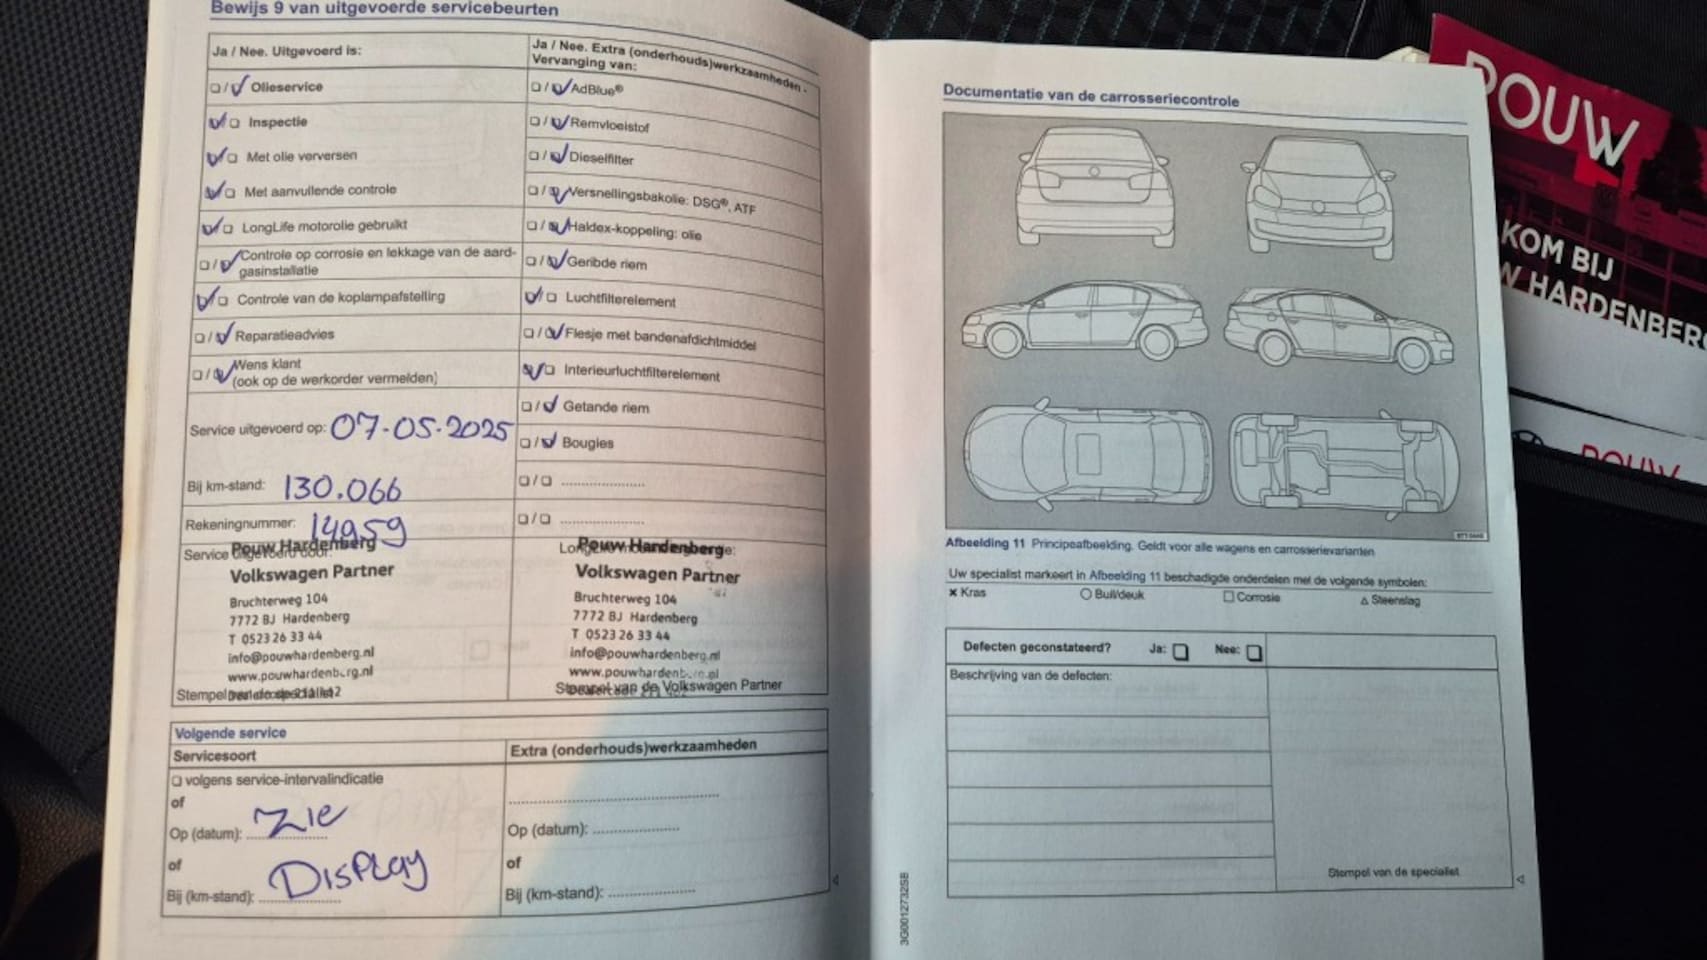 Bewijs 9 van uitgevoerde servicebeurten
Ja / Nee. Uitgevoerd is:
Olieservice
Inspectie
Met olie verversen
Met aanvullende controle
LongLife motorolie gebruikt
Controle op corrosie en lekkage van de aard-
gasinstallatie
Controle van de koplampafstelling
Reparatieadvies
Wens klant
(ook op de werkorder vermelden)
Service uitgevoerd op: 07-05-2025
Bij km-stand: 130.066
Rekeningnummer: 14959
Service uitgevoerd door:
Pouw Hardenberg
Volkswagen Partner
Bruchterweg 104
7772 BJ Hardenberg
T 0523 26 33 44
info@pouwhardenberg.nl
www.pouwhardenberg.nl
Ja / Nee. Extra (onderhouds)werkzaamheden -
Vervanging van:
AdBlue®
Remvloeistof
Dieselfilter
Versnellingsbakolie: DSG®, ATF
Haldex-koppeling: olie
Geribde riem
Luchtfilterelement
Flesje met bandenafdichtmiddel
Interieurluchtfilterelement
Getande riem
Bougies
Pouw Hardenberg
Volkswagen Partner
Bruchterweg 104
7772 BJ Hardenberg
T 0523 26 33 44
info@pouwhardenberg.nl
www.pouwhardenberg.nl
Stempel van de Volkswagen Partner
Volgende service
Servicesoort
volgens service-intervalindicatie
of
Op (datum): Zie
of
Bij (km-stand): Display
Extra (onderhouds)werkzaamheden
Op (datum):
of
Bij (km-stand):
Documentatie van de carrosseriecontrole
Afbeelding 11 Principeafbeelding. Geldt voor alle wagens en carrosserievarianten
Uw specialist markeert in Afbeelding 11 beschadigde onderdelen met de volgende symbolen:
Kras Buil/deuk Corrosie Steenslag
Defecten geconstateerd? Ja: Nee:
Beschrijving van de defecten:
Stempel van de specialist
3G0012732SB
POUW
KOM BIJ
W HARDENBERG
POUW